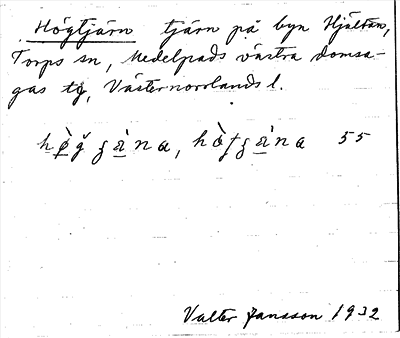 Högtjärn tjärn på byn Hjältan,
Torps sn, Medelpads västra domsa-
gas tg, Västernorrlands l.
55
Valter Jansson 1932